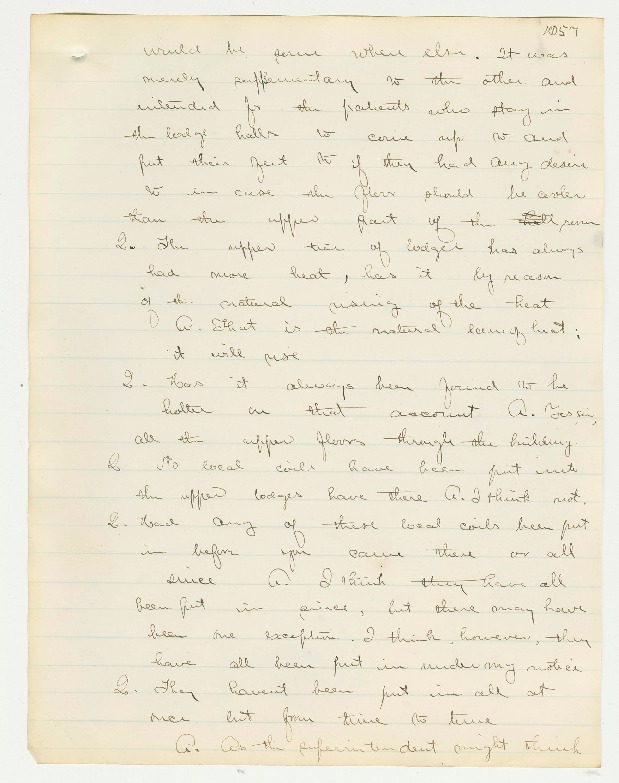 1057
would be some where else. It was
merely supplementary to the other and
intended for the patients who stay in
the lodge halls to come up to and
put their feet to if they had any desire
to in case the floor should be cooler
than the upper part of the room
Q. The upper tier of lodges has always
had more heat, has it by reason
of the natural rising of the heat
A. That is the natural law of heat;
it will rise
Q. Has it always been found to be
hotter on that account A. Yes sir,
all the upper floors through the building.
Q No local coils have been put into
the upper lodges have there A. I think not.
Q. Had any of these local coils been put
in before you came there or all
since A. I think they have all
been put in since, but there may have
been one exception. I think, however, they
have all been put in under my notice
Q. They havent been put in all at
once but from time to time
A. As the superintendent might think